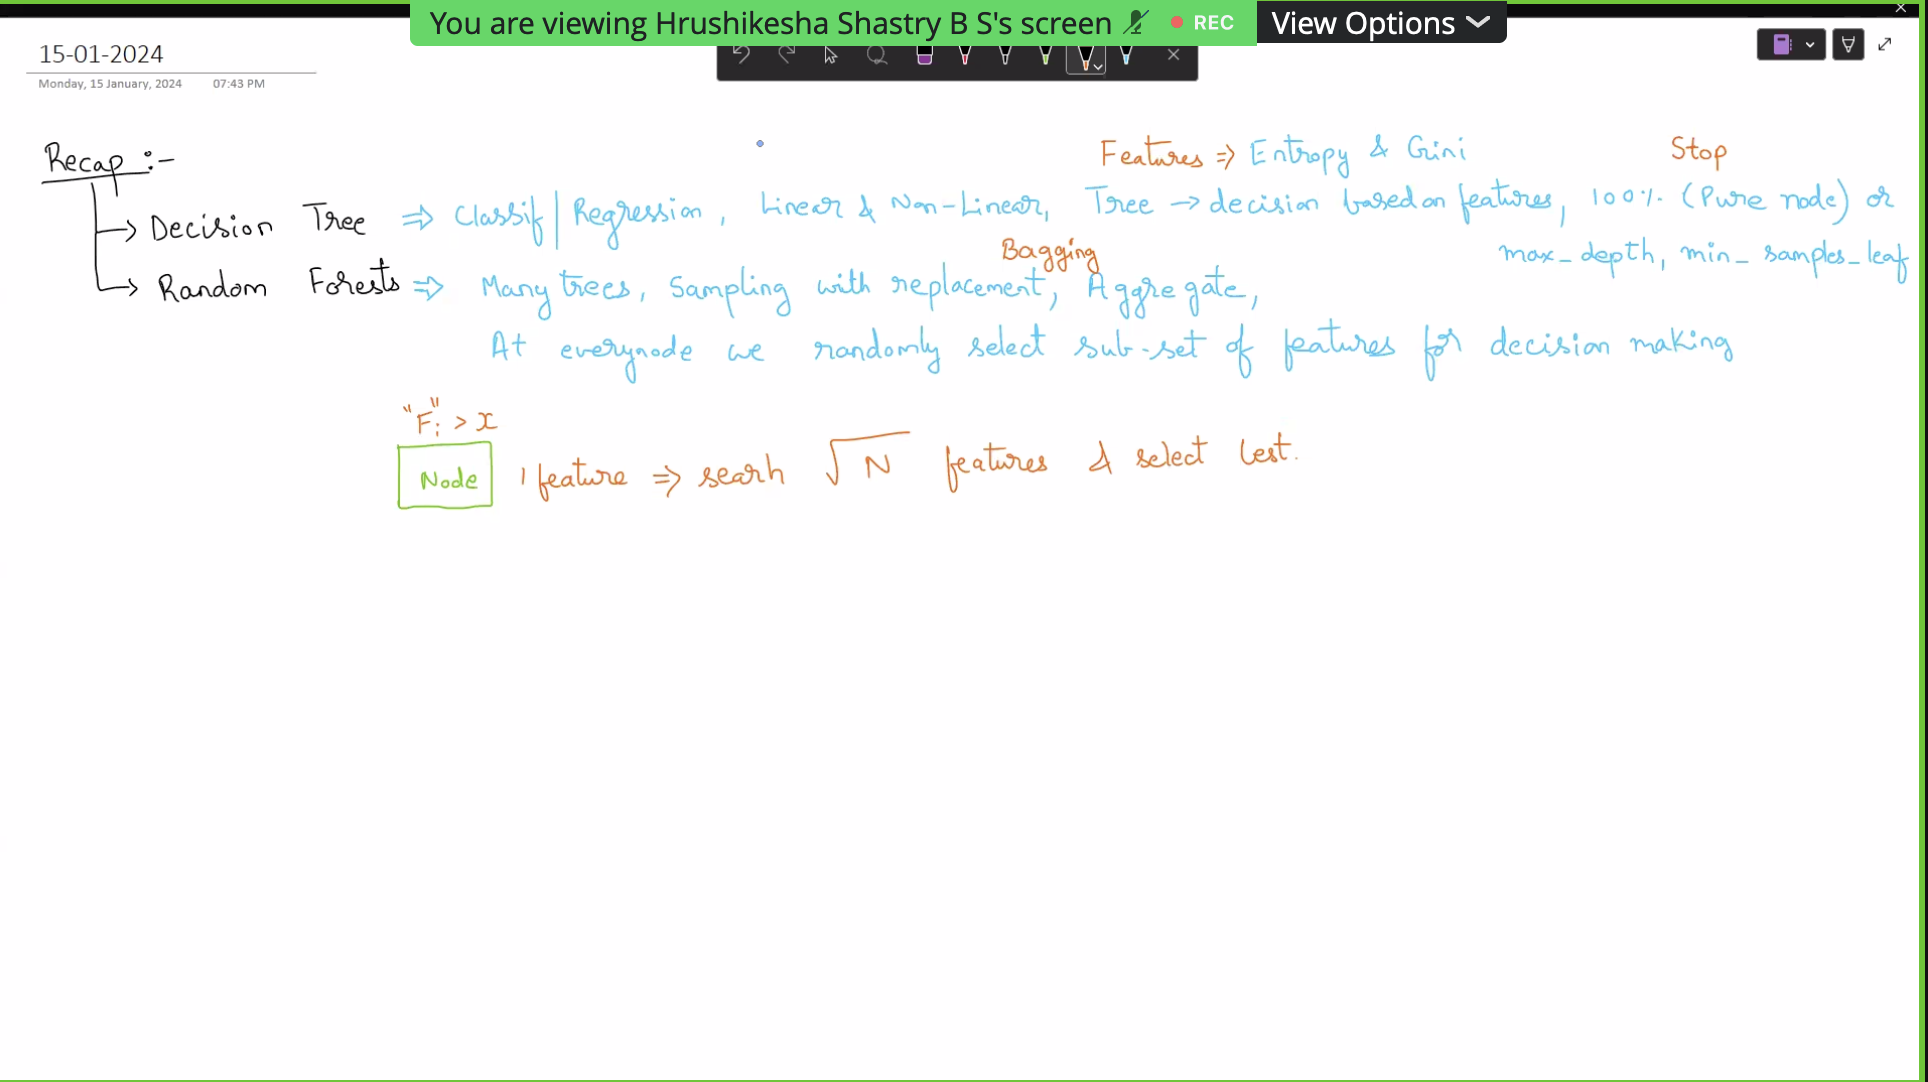 You are viewing Hrushikesha Shastry B S's screen REC View Options
15-01-2024
Monday, 15 January, 2024 07:43 PM
Recap :-
Features => Entropy & Gini Stop
Decision Tree => Classif | Regression, Linear & Non-Linear, Tree -> decision based on features, 100% (Pure node) or
max_depth, min_samples_leaf
Bagging
Random Forests => Many trees, Sampling with replacement, Aggregate,
At everynode we randomly select sub-set of features for decision making
"Fi" > x
Node 1 feature => searh √N features & select best.